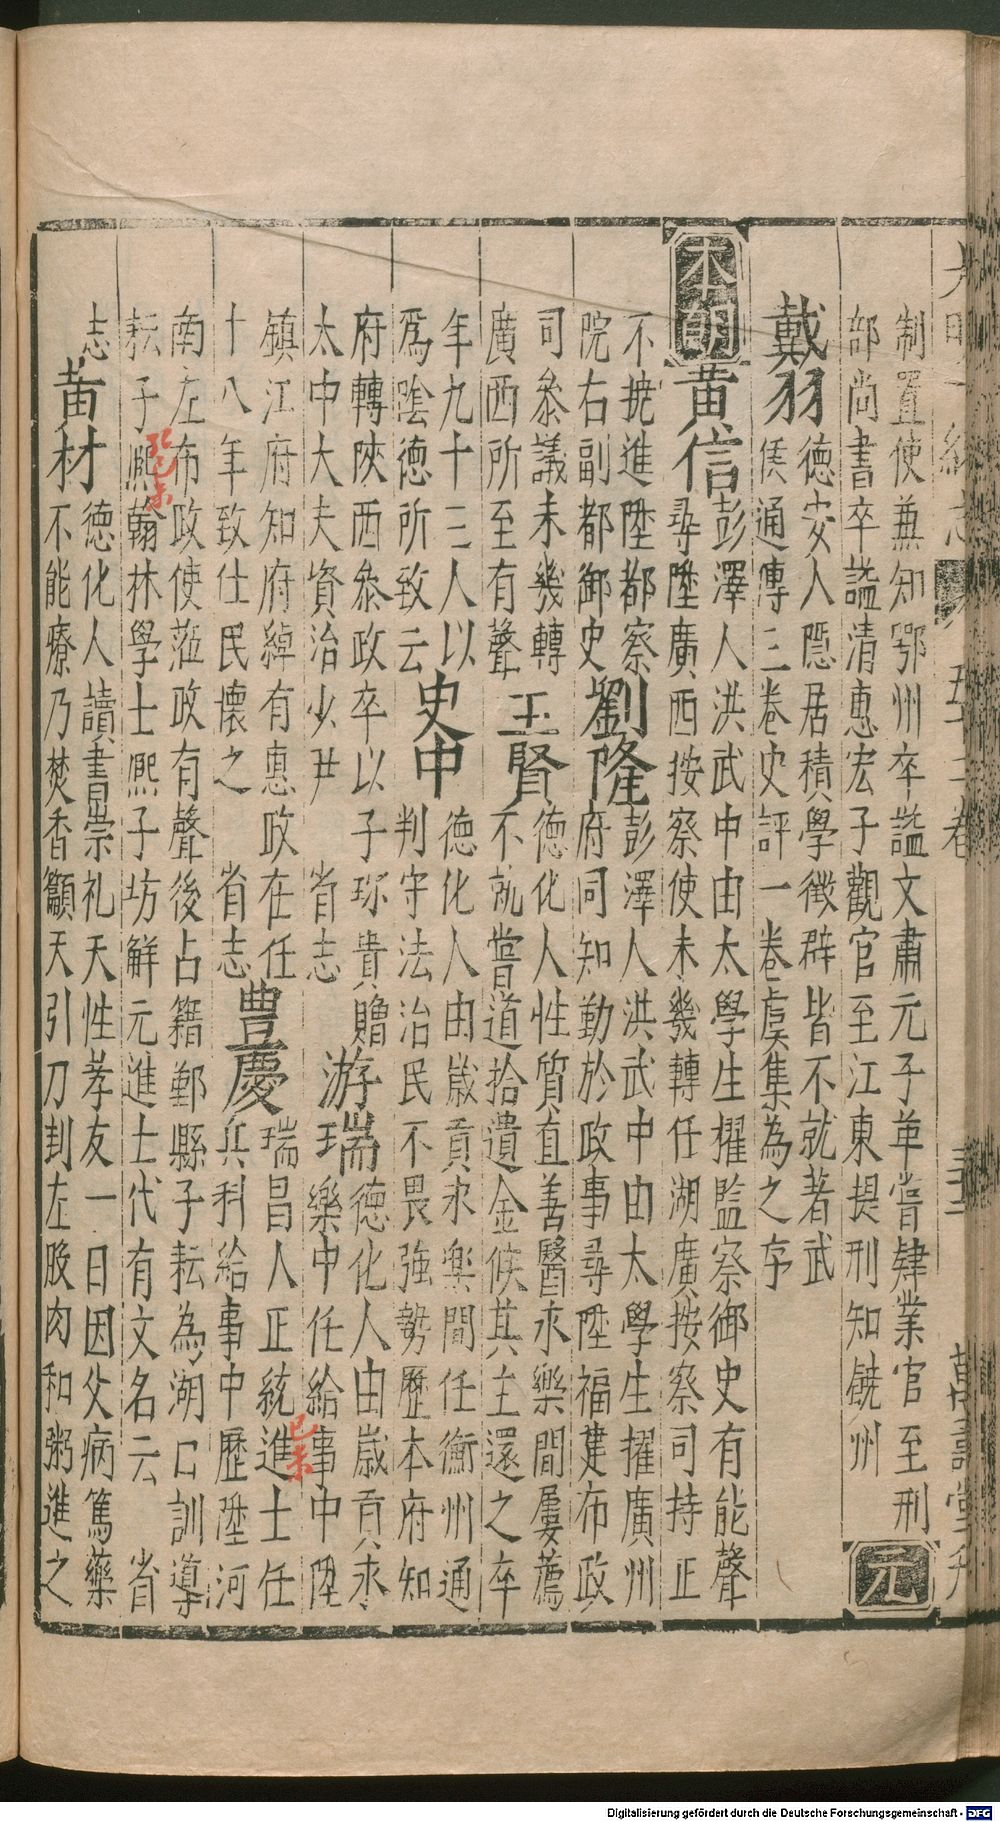 大明一統志 五十二卷 萬壽堂刊
制置使兼知鄂州卒謚文肅元子革嘗肄業官至刑
部尚書卒謚清惠宏子觀官至江東提刑知饒州
元
戴羽
德安人隱居積學徵群皆不就著武
侯通傳三卷史評一卷虞集為之序
本朝
黄信
彭澤人洪武中由太學生擢監察御史有能聲
尋陞廣西按察使未幾轉任湖廣按察司持正
不撓進陞都察
院右副都御史
劉隆
彭澤人洪武中由太學生擢廣州
府同知勤於政事尋陞福建布政
司叅議未幾轉
廣西所至有聲
王賢
德化人性質直善醫永樂間屢薦
不就嘗道拾遺金候其主還之卒
年九十三人以
爲陰德所致云
史中
德化人由歲貢永樂間任衡州通
判守法治民不畏強勢歷本府知
府轉陝西叅政卒以子琛貴贈
太中大夫資治少尹 省志
游瑞
德化人由歲貢永
樂中任給事中陞
鎮江府知府綽有惠政在任
十八年致仕民懷之 省志
豊慶
瑞昌人正統進士任
兵科給事中歷陞河
己未
南左布政使蒞政有聲後占籍鄞縣子耘為湖口訓導
耘子熈翰林學士熈子坊解元進士代有文名云 省
己未
志
黄材
德化人讀書崇礼天性孝友一日因父病篤藥
不能療乃焚香籲天引刀刲左股肉和粥進之
Digitalisierung gefördert durch die Deutsche Forschungsgemeinschaft - DFG